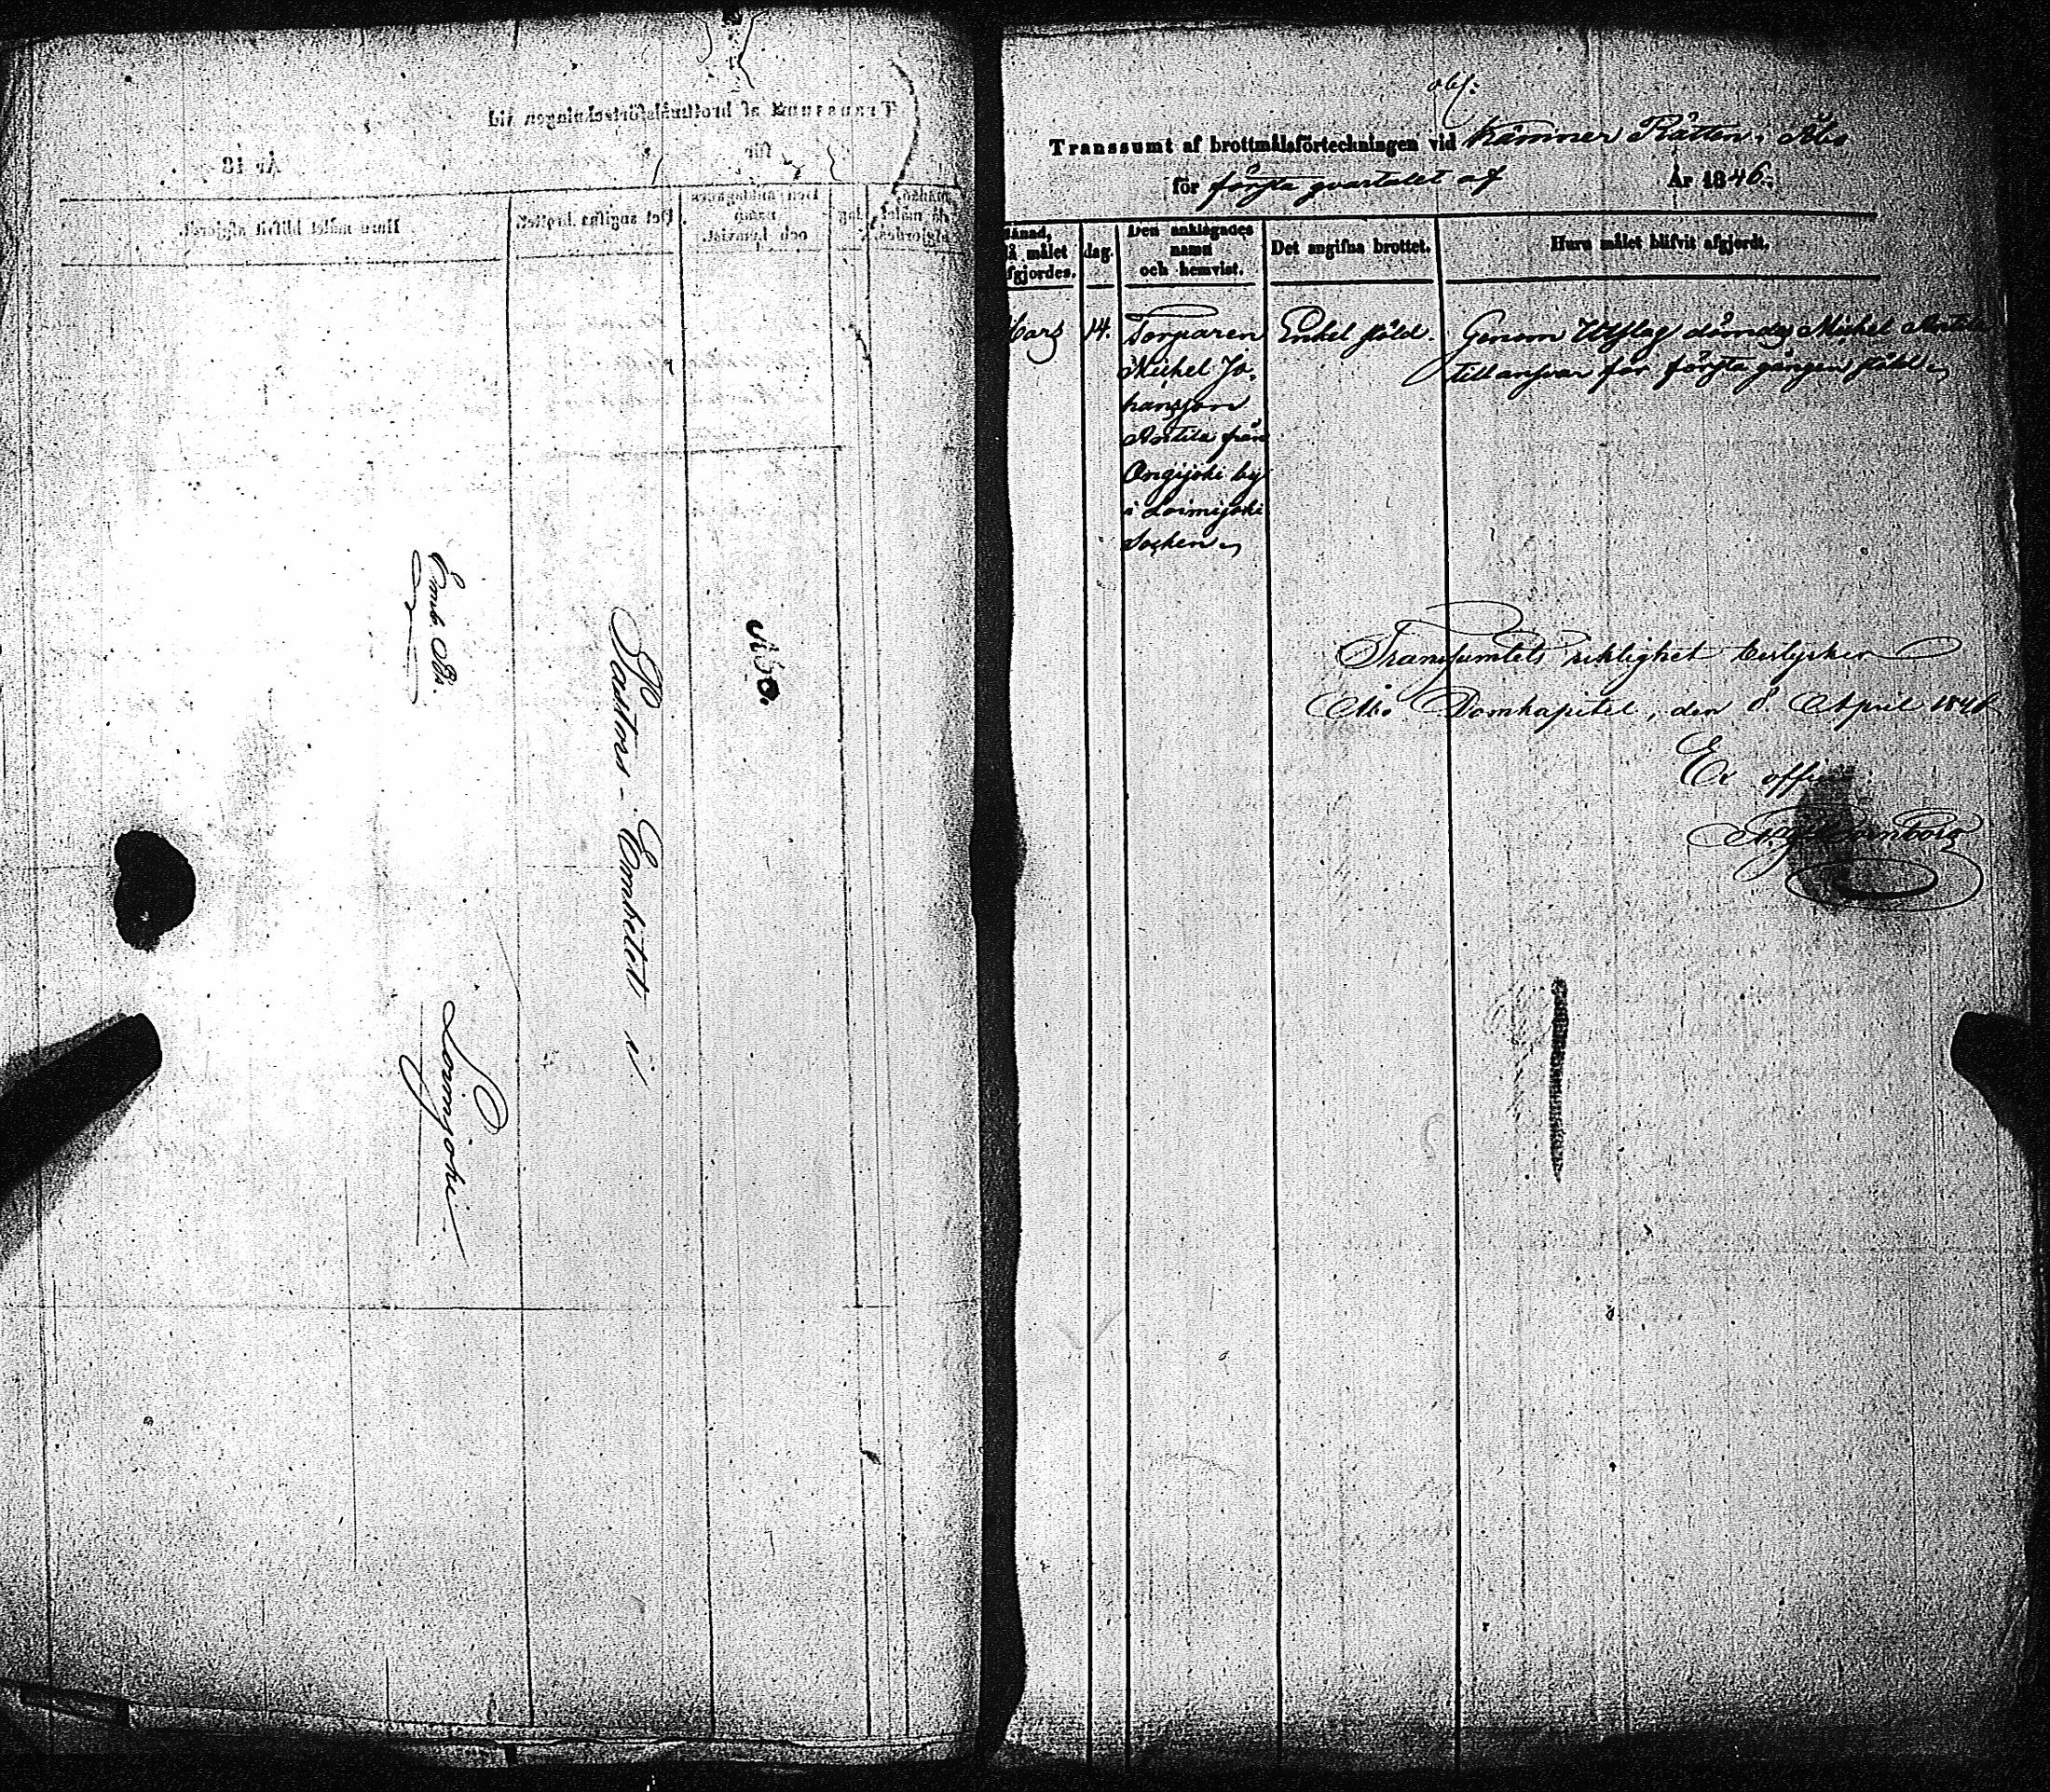 Till
Pastors-Embetet i
Loimijoki
Emb. Bs.
Transsumt af brottmålsförteckningen vid Kämner Rätten i Åbo
för första qvartalet af År 1846.
Månad, då målet afgjordes.
dag.
Den anklagades namn och hemvist.
Det angifna brottet.
Huru målet blifvit afgjordt.
Mars 14. Torparen Enkel stöld. Genom Utslag dömdes Michel Antila
Michel Jo- till answar för första gången stöld
hansson
Antila från
Ongijoki by
i Loimijoki
Socken
Transsumtets riktighet bestyrker
Åbo Domkapitel, den 8 April 1846
Ex officio